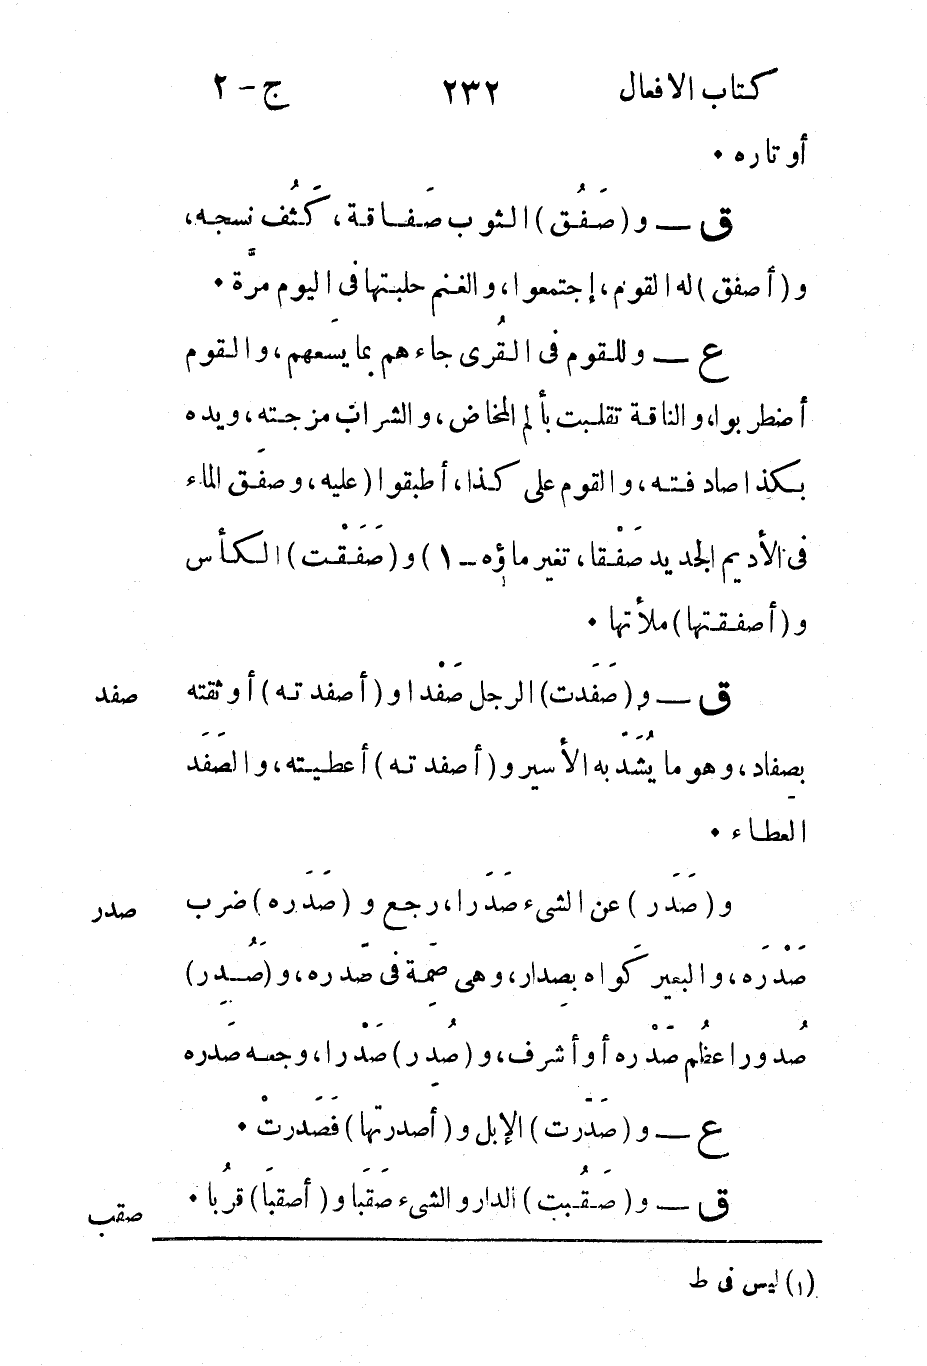 كتاب الافعال ٢٣٢ ج - ٢
أوتاره •
ق — و (صَفُق) الثوب صَفاقة، كَثُف نسجه،
و (أصفق) له القوم، إجتمعوا، والغنم حلبتها فى اليوم مرّة •
ع — وللقوم فى القُرى جاءهم بما يسَعهم، والقوم
أضطربوا، والناقة تقلبت بألم المخاض، والشراب مزجته، ويده
بكذا صادفته، والقوم على كذا، أطبقوا (عليه، وصفَق الماء
فى الأديم الجديد صَفْقا، تغير ماؤه - ١) و (صَفَقْت) الكأس
و (أصفقتها) ملأتها •
ق — و (صَفَدت) الرجل صَفْدا و (أصفدته) أوثقته صفد
بصفاد، وهو ما يُشَدّ به الأسير و (أصفدته) أعطيته، والصَفَد
العطاء •
و (صَدَر) عن الشىء صَدَرا، رجع و (صَدَره) ضرب صدر
صَدْرَه، والبعير كَواه بِصدار، وهى سِمَة فى صَدره، و (صُدِر)
صُدورا عظُم صَدْره أو أشرف، و (صُدِر) صَدْرا، وجعه صَدره
ع — و (صَدّرت) الإبل و (أصدرتّها) فَصَدرتْ •
ق — و (صَقُبت) الدار والشىء صَقَبا و (أصقبَا) قرُبا • صقب
(١) ليس فى ط